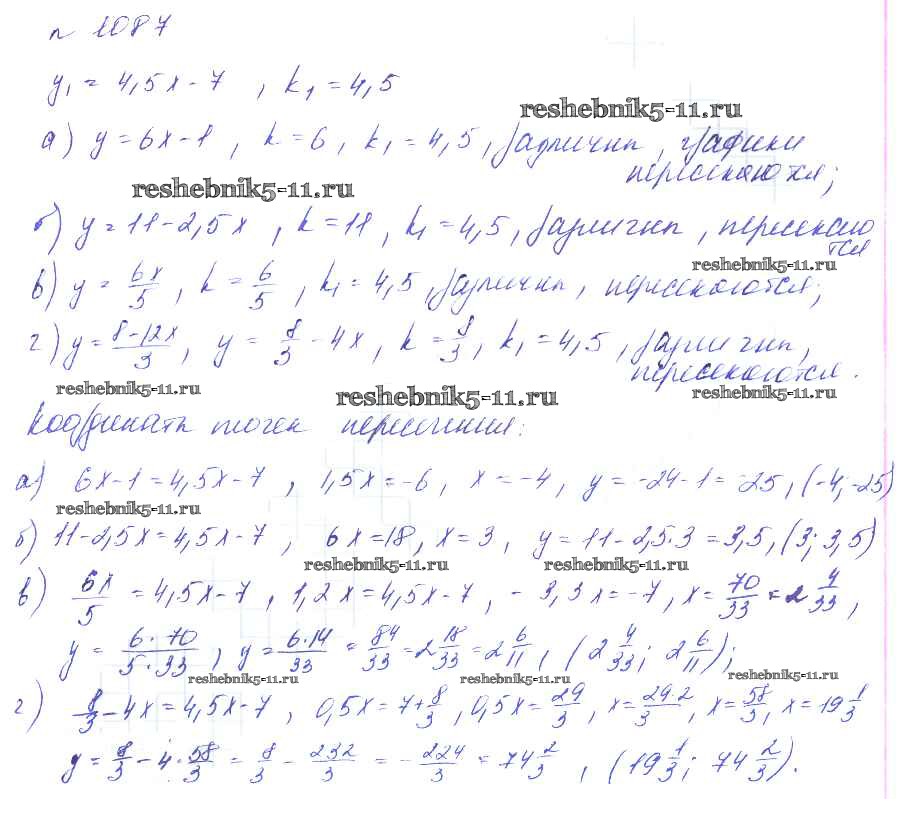 n 1087
y₁ = 4,5x - 7 , k₁ = 4,5
reshebnik5-11.ru
а) y = 6x - 1 , k = 6 , k₁ = 4,5 , различны , графики
пересекаются;
reshebnik5-11.ru
б) y = 11 - 2,5x , k = 11 , k₁ = 4,5 , различны , пересекаю
тся
reshebnik5-11.ru
в) y = 6x/5 , k = 6/5 , k₁ = 4,5 , различны , пересекаются;
г) y = 8-12x/3 , y = 8/3 - 4x , k = 8/3 , k₁ = 4,5 , различны ,
пересекаются.
reshebnik5-11.ru reshebnik5-11.ru reshebnik5-11.ru
Координаты точек пересечения:
а) 6x - 1 = 4,5x - 7 , 1,5x = -6 , x = -4 , y = -24 - 1 = -25 , (-4; -25)
reshebnik5-11.ru
б) 11 - 2,5x = 4,5x - 7 , 6x = 18 , x = 3 , y = 11 - 2,5·3 = 3,5 , (3; 3,5)
reshebnik5-11.ru reshebnik5-11.ru
в) 6x/5 = 4,5x - 7 , 1,2x = 4,5x - 7 , -3,3x = -7 , x = 70/33 = 2 4/33 ,
y = 6·70/5·33 , y = 6·14/33 = 84/33 = 2 18/33 = 2 6/11 , (2 4/33 ; 2 6/11);
reshebnik5-11.ru reshebnik5-11.ru
г) 8/3 - 4x = 4,5x - 7 , 0,5x = 7 + 8/3 , 0,5x = 29/3 , x = 29·2/3 , x = 58/3 , x = 19 1/3
y = 8/3 - 4·58/3 = 8/3 - 232/3 = -224/3 = 74 2/3 , (19 1/3 ; 74 2/3).